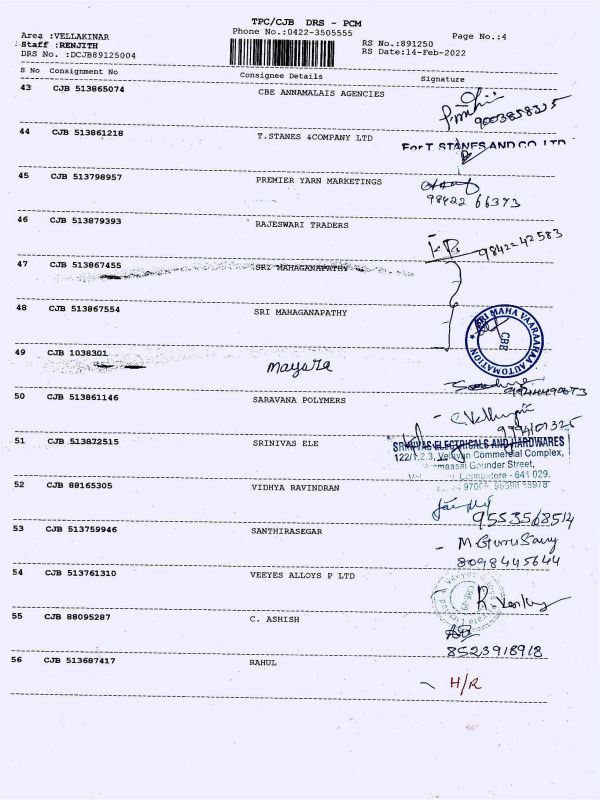 TPC/CJB DRS - PCM
Area :VELLAKINAR
Phone No.:0422-3505555
Page No.:4
Staff :RENJITH
RS No.:891250
DRS No. :DCJB89125004
RS Date:14-Feb-2022
S No Consignment No Consignee Details Signature
43 CJB 513865074 CBE ANNAMALAIS AGENCIES
9003858325
44 CJB 513861218 T.STANES &COMPANY LTD
For T. STANES AND CO. LTD.
45 CJB 513798957 PREMIER YARN MARKETINGS
98422 66373
46 CJB 513879393 RAJESWARI TRADERS
9842242583
47 CJB 513867455 SRI MAHAGANAPATHY
48 CJB 513867554 SRI MAHAGANAPATHY
SRI MAHA VAARAAHAA AUTOMATION
CBE
49 CJB 1038301
50 CJB 513861146 SARAVANA POLYMERS
51 CJB 513872515 SRINIVAS ELE
SRINIVAS ELECTRICALS AND HARDWARES
122/1,2,3, Velavan Commercial Complex,
Gounder Street,
Coimbatore - 641 029.
52 CJB 88165305 VIDHYA RAVINDRAN
9553568514
53 CJB 513759946 SANTHIRASEGAR
M Gurusamy
8098445644
54 CJB 513761310 VEEYES ALLOYS P LTD
55 CJB 88095287 C. ASHISH
8523918918
56 CJB 513687417 RAHUL
H/R